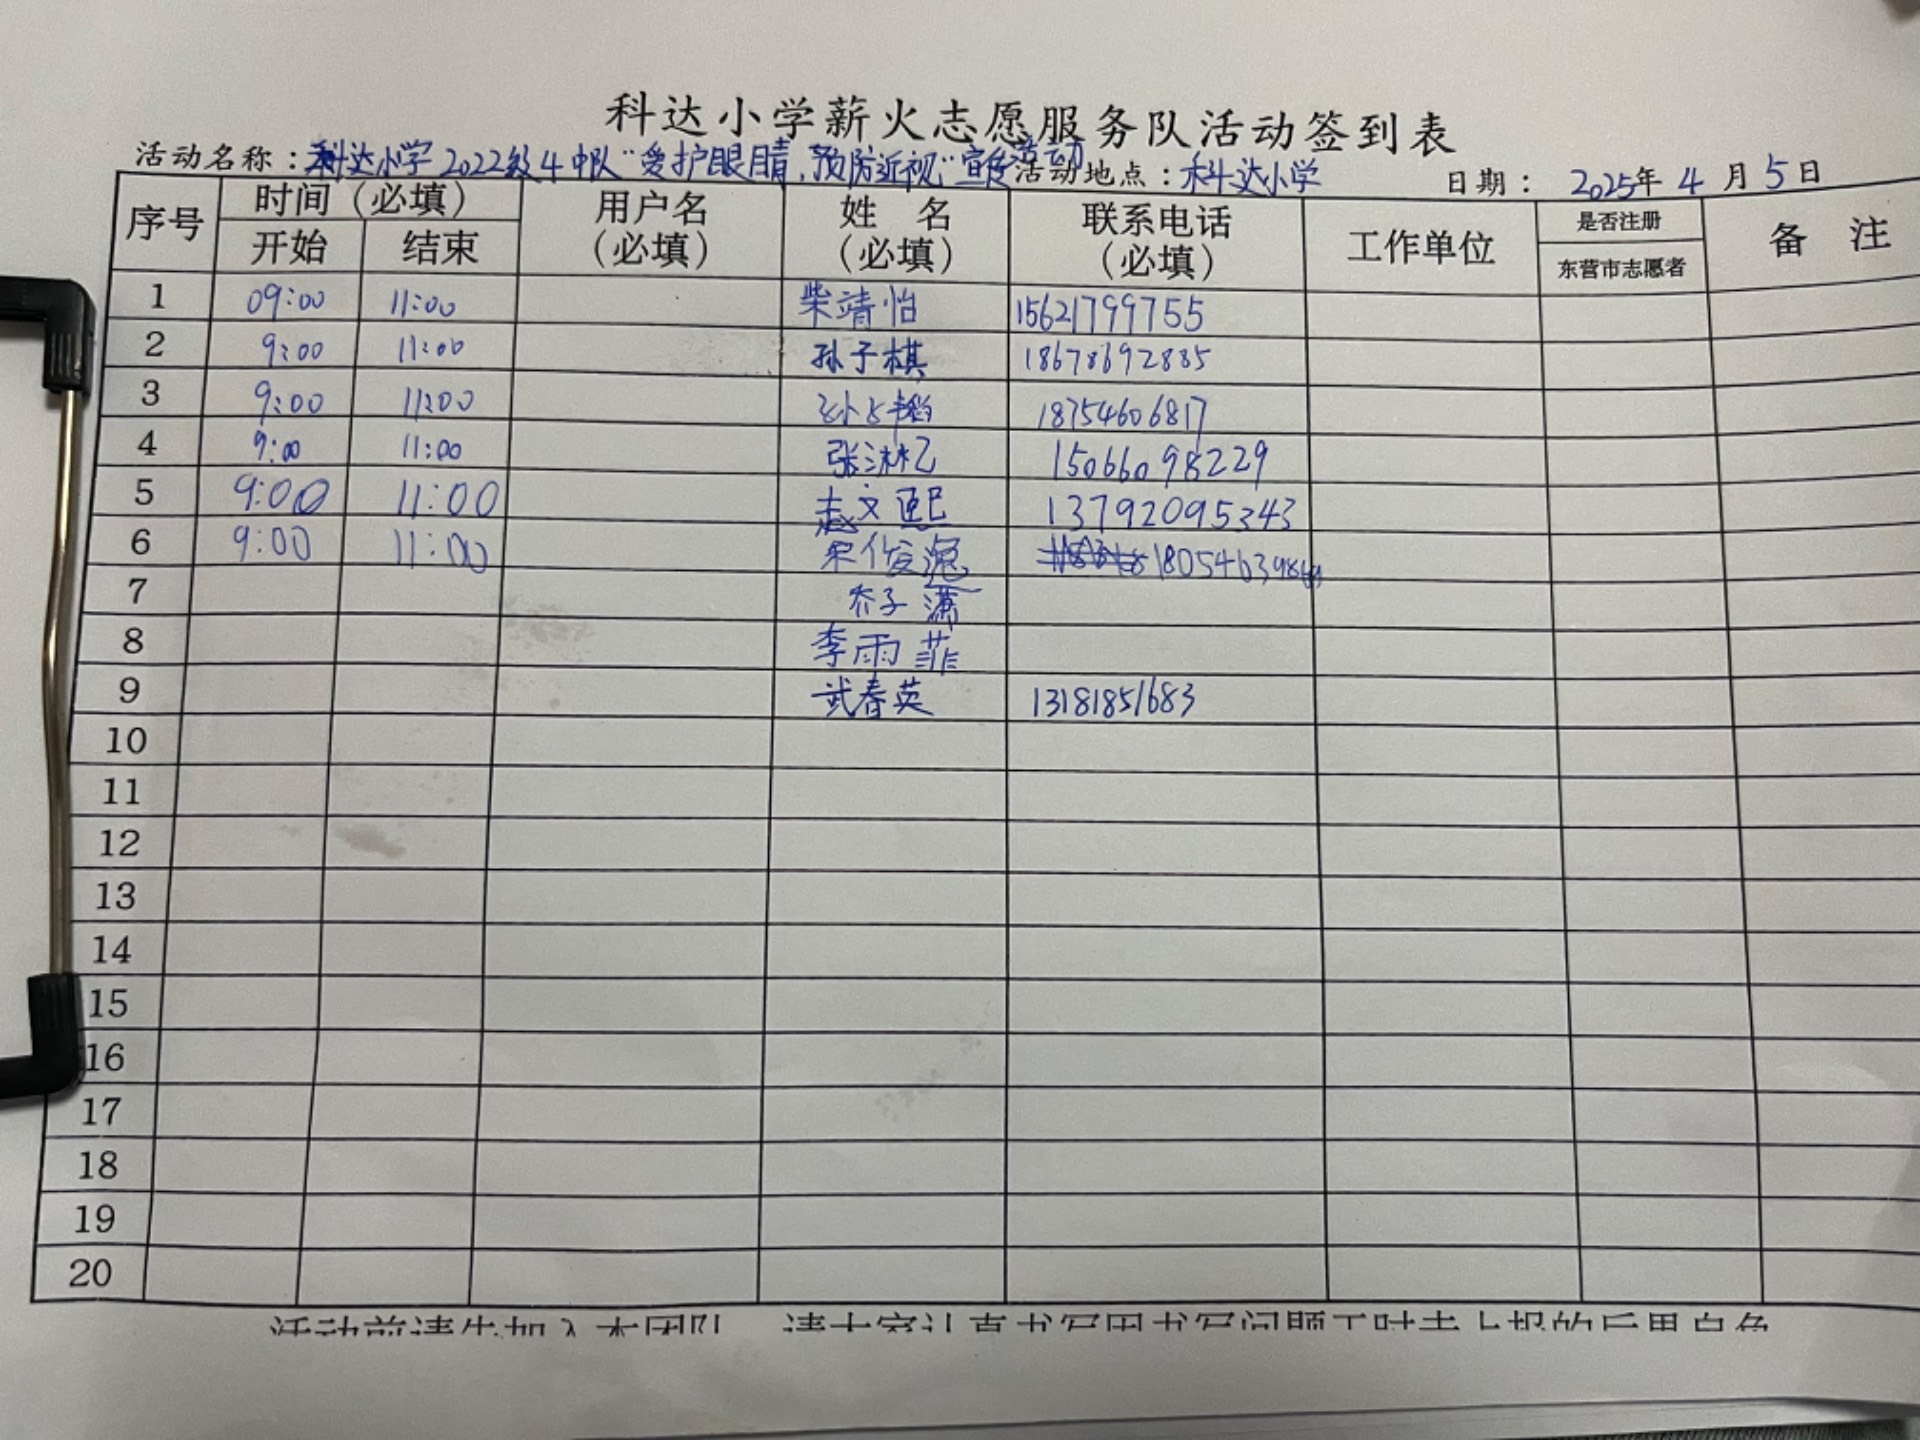 科达小学薪火志愿服务队活动签到表
活动名称：科达小学2022级4中队"爱护眼睛,预防近视"宣传活动 活动地点：科达小学 日期：2025年4月5日
序号 时间（必填） 用户名（必填） 姓名（必填） 联系电话（必填） 工作单位 是否注册 东营市志愿者 备注
开始 结束
1 09:00 11:00 柴靖怡 15621799755
2 9:00 11:00 孙子棋 18678692885
3 9:00 11:00 18754606817
4 9:00 11:00 张沐忆 15066098229
5 9:00 11:00 赵文熙 13792095343
6 9:00 11:00 宋俊滟
7 乔子潇
8 李雨菲
9 武春英 13181851683
10
11
12
13
14
15
16
17
18
19
20